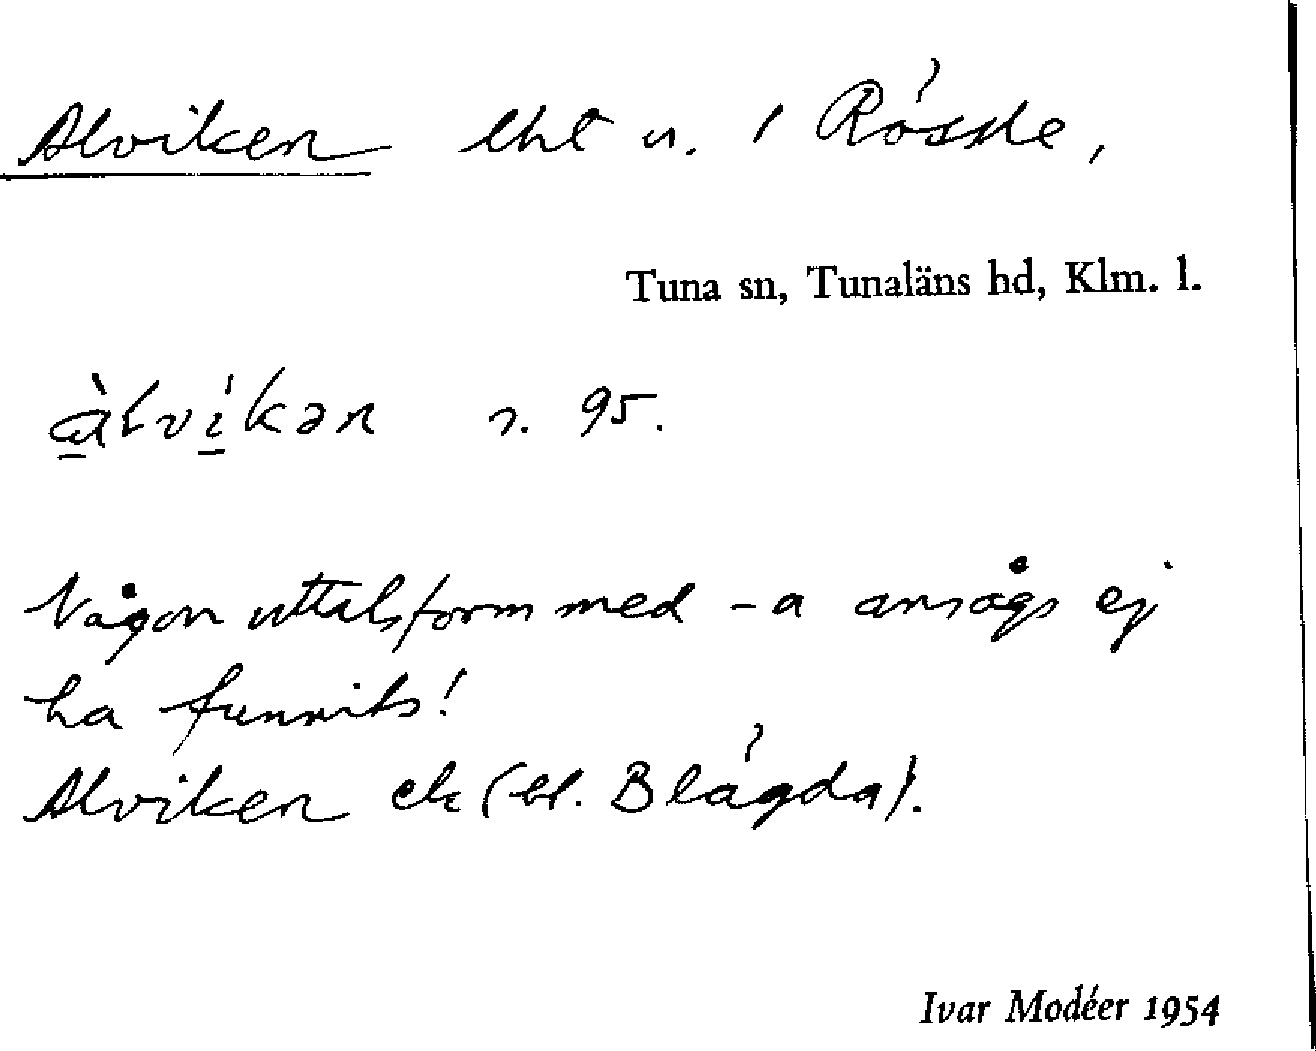 Alviken lht u. / Rössle,
Tuna sn, Tunaläns hd, Klm. l.
àlvíkən s. 95.
Någon uttalsform med -a ansågs ej
ha funnits!
Alviken ek (bl. Blågda).
Ivar Modéer 1954